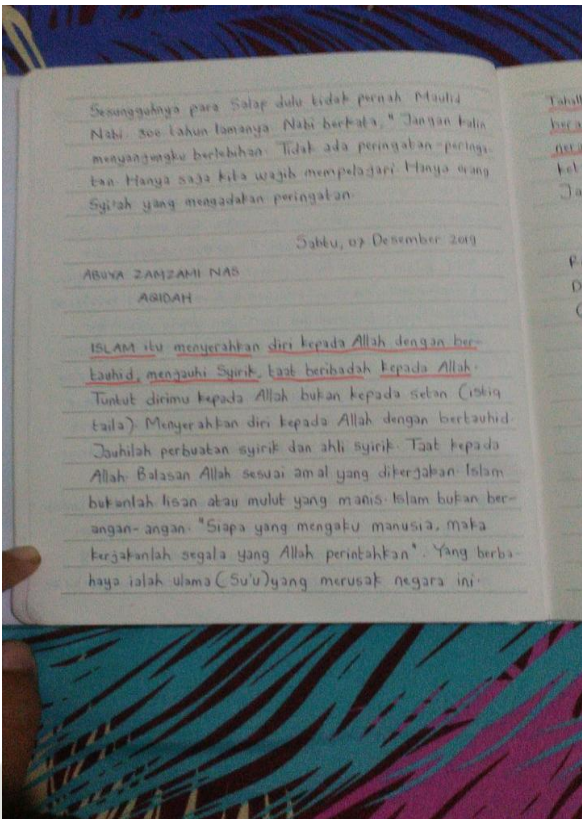 Sesungguhnya para Salap dulu tidak pernah Maulid
Nabi. 300 tahun lamanya Nabi berkata, "Jangan kalin
menyanjungku berlebihan. Tidak ada peringatan-peringa
tan. Hanya saja kita wajib mempelajari. Hanya orang
Syi'ah yang mengadakan peringatan.
Sabtu, 07 Desember 2019
ABUYA ZAMZAMI NAS
AQIDAH
ISLAM itu menyerahkan diri kepada Allah dengan ber-
tauhid, menjauhi Syirik, taat beribadah kepada Allah.
Tuntut dirimu kepada Allah bukan kepada setan (istiq
taila). Menyerahkan diri kepada Allah dengan bertauhid.
Jauhilah perbuatan syirik dan ahli syirik. Taat kepada
Allah. Balasan Allah sesuai amal yang dikerjakan. Islam
bukanlah lisan atau mulut yang manis. Islam bukan ber-
angan-angan. "Siapa yang mengaku manusia, maka
kerjakanlah segala yang Allah perintahkan". Yang berba-
haya ialah ulama (Su'u) yang merusak negara ini.
Ja